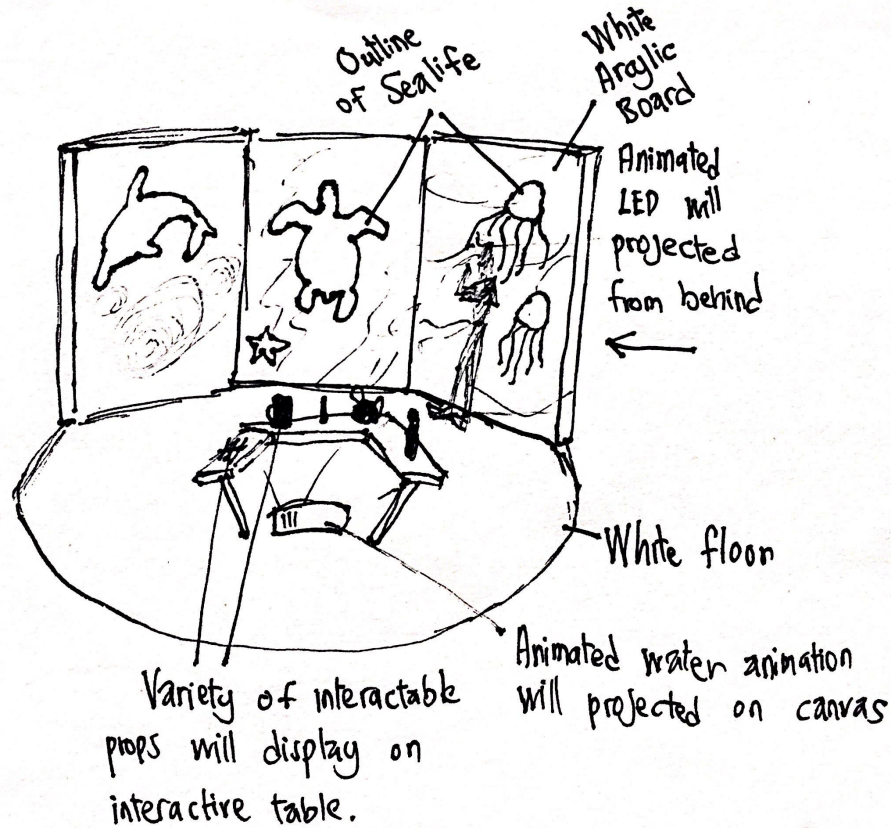 Outline
of Sealife
White
Araylic
Board
Animated
LED will
projected
from behind
White floor
Animated water animation
will projected on canvas
Variety of interactable
props will display on
interactive table.